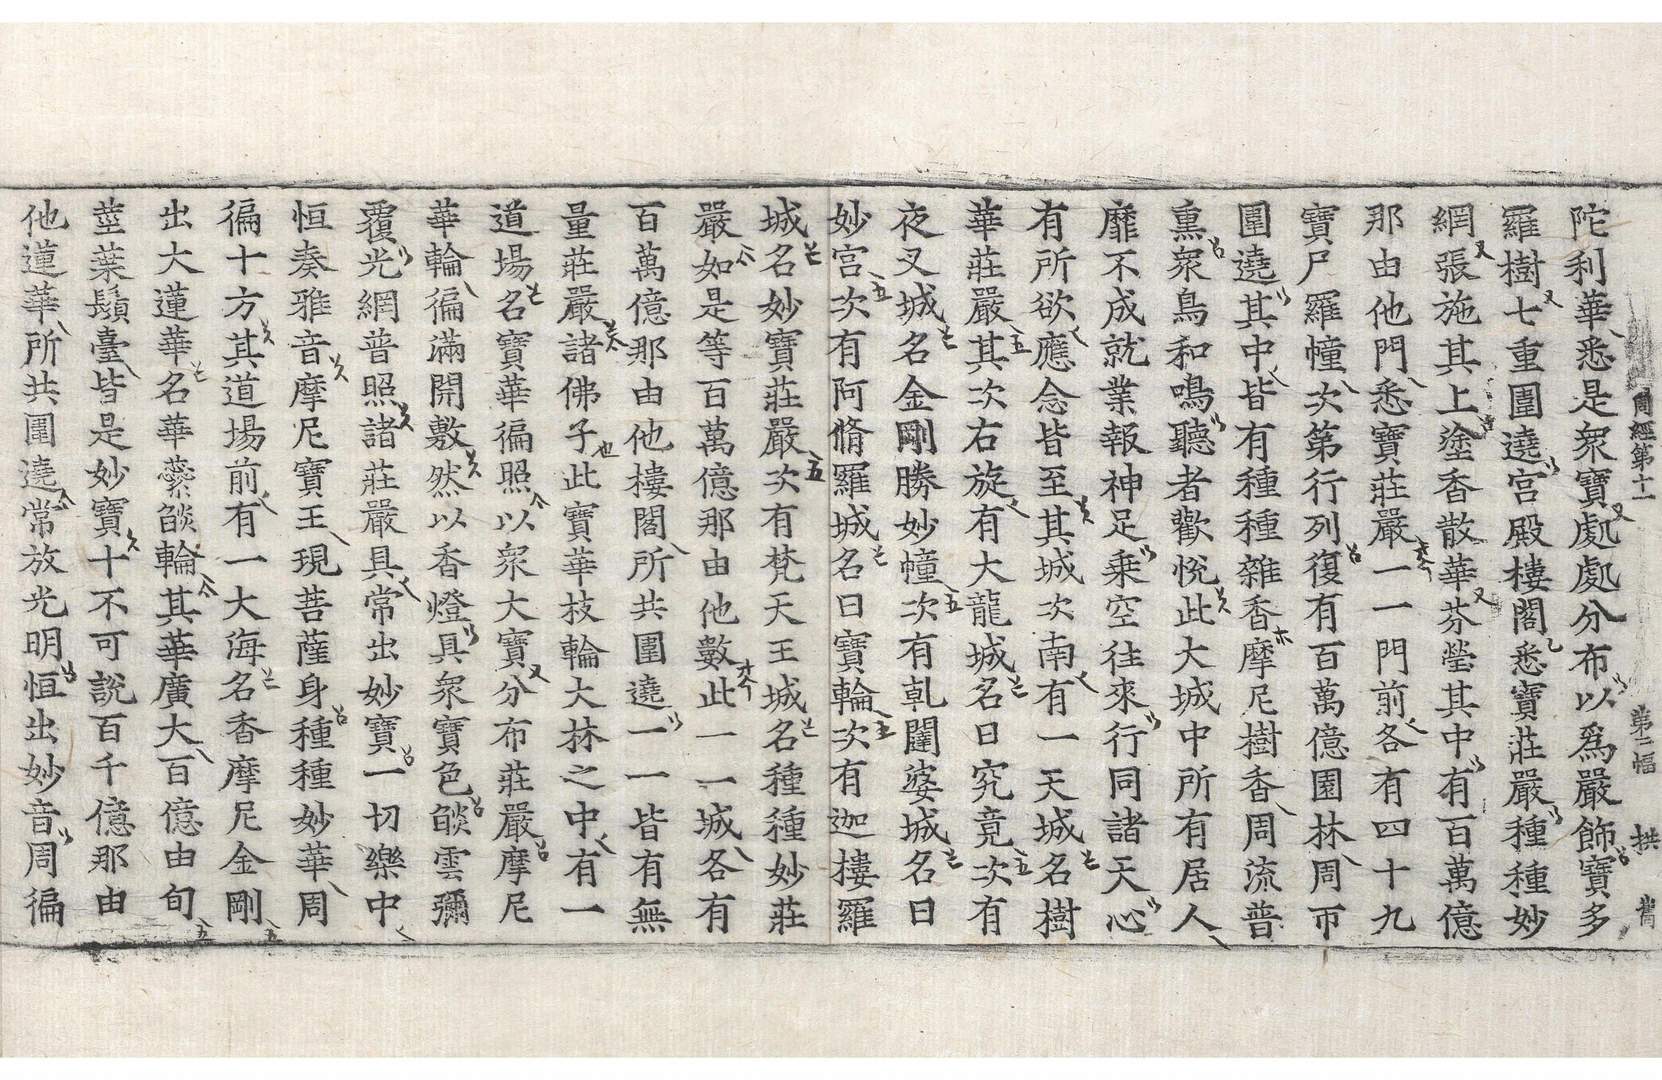 周經第十一　第二幅　拱　舊
陀利華悉是衆寶處處分布以爲嚴飾寶多
羅樹七重圍遶宮殿樓閣悉寶莊嚴種種妙
網張施其上塗香散華芬瑩其中有百萬億
那由他門悉寶莊嚴一一門前各有四十九
寶尸羅幢次第行列復有百萬億園林周帀
圍遶其中皆有種種雜香摩尼樹香周流普
熏衆鳥和鳴聽者歡悅此大城中所有居人
靡不成就業報神足乘空往來行同諸天心
有所欲應念皆至其城次南有一天城名樹
華莊嚴其次右旋有大龍城名曰究竟次有
夜叉城名金剛勝妙幢次有乹闥婆城名曰
妙宮次有阿脩羅城名曰寶輪次有迦樓羅
城名妙寶莊嚴次有梵天王城名種種妙莊
嚴如是等百萬億那由他數此一一城各有
百萬億那由他樓閣所共圍遶一一皆有無
量莊嚴諸佛子此寶華枝輪大林之中有一
道場名寶華徧照以衆大寶分布莊嚴摩尼
華輪徧滿開敷然以香燈具衆寶色焰雲彌
覆光網普照諸莊嚴具常出妙寶一切樂中
恒奏雅音摩尼寶王現菩薩身種種妙華周
徧十方其道場前有一大海名香摩尼金剛
出大蓮華名華蘂焰輪其華廣大百億由旬
莖葉鬚臺皆是妙寶十不可說百千億那由
他蓮華所共圍遶常放光明恒出妙音周徧